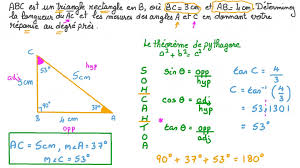 ABC est un triangle rectangle en B, où BC = 3cm et AB = 4cm. Déterminez
la longueur du AC et les mesures des angles A et C en donnant votre
réponse au degré près
C
53°
hyp
adj
3cm
5cm
90°
37°
B
4cm
A
opp
AC = 5cm, m∠A = 37°
m∠C = 53°
Le théorème de pythagore
a² + b² = c²
S
O
H
C
A
H
T
O
A
sin θ = opp/hyp
cos θ = adj/hyp
tan θ = opp/adj
tan C = 4/3
C = tan⁻¹(4/3)
= 53,1301
= 53°
90° + 37° + 53° = 180°